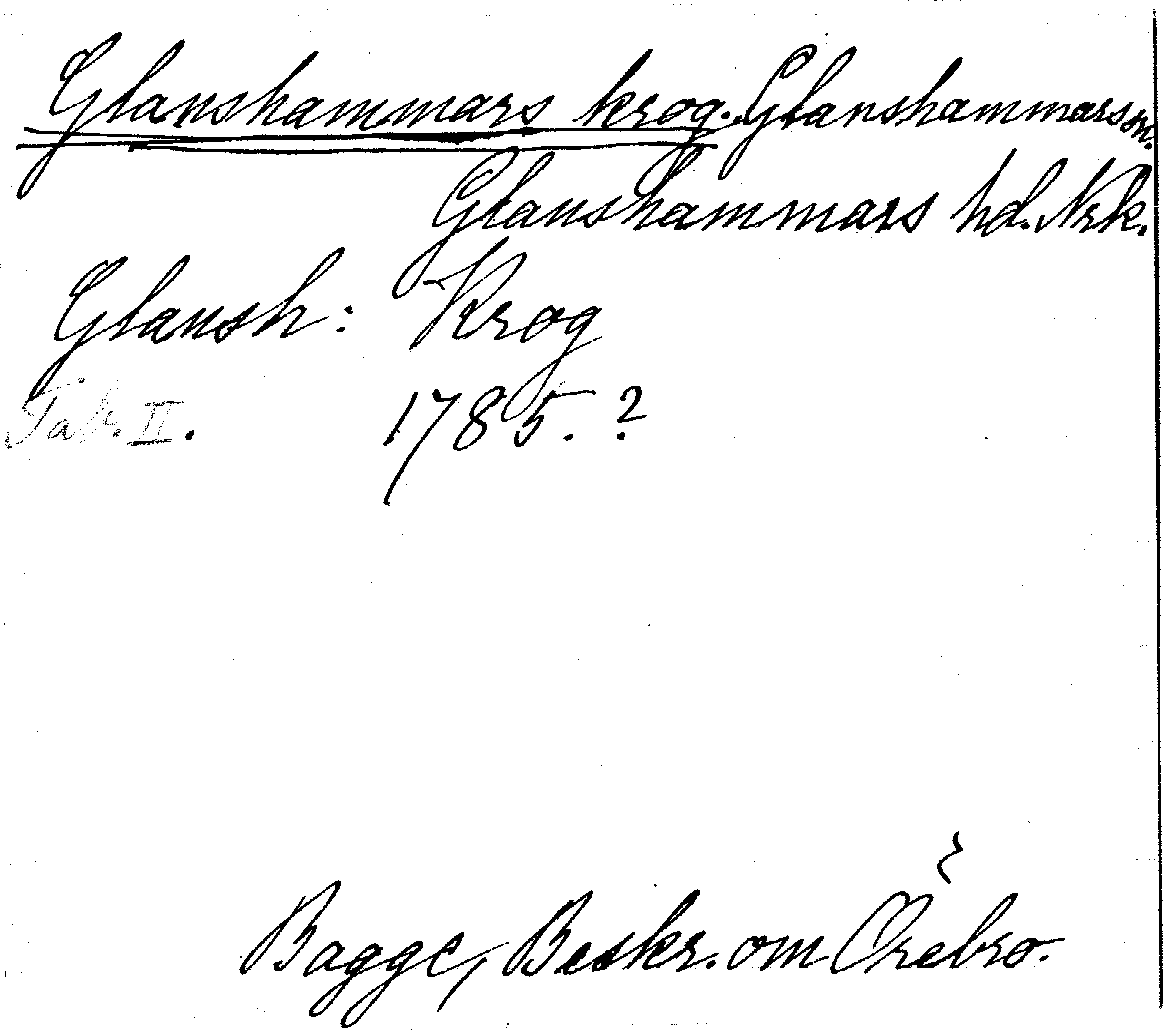 Glanshammars krog. Glanshammars sn.
Glanshammars hd. Nrk.
Glansh: Krog
Tab. II. 1785. ?
Bagge, Beskr. om Örebro.